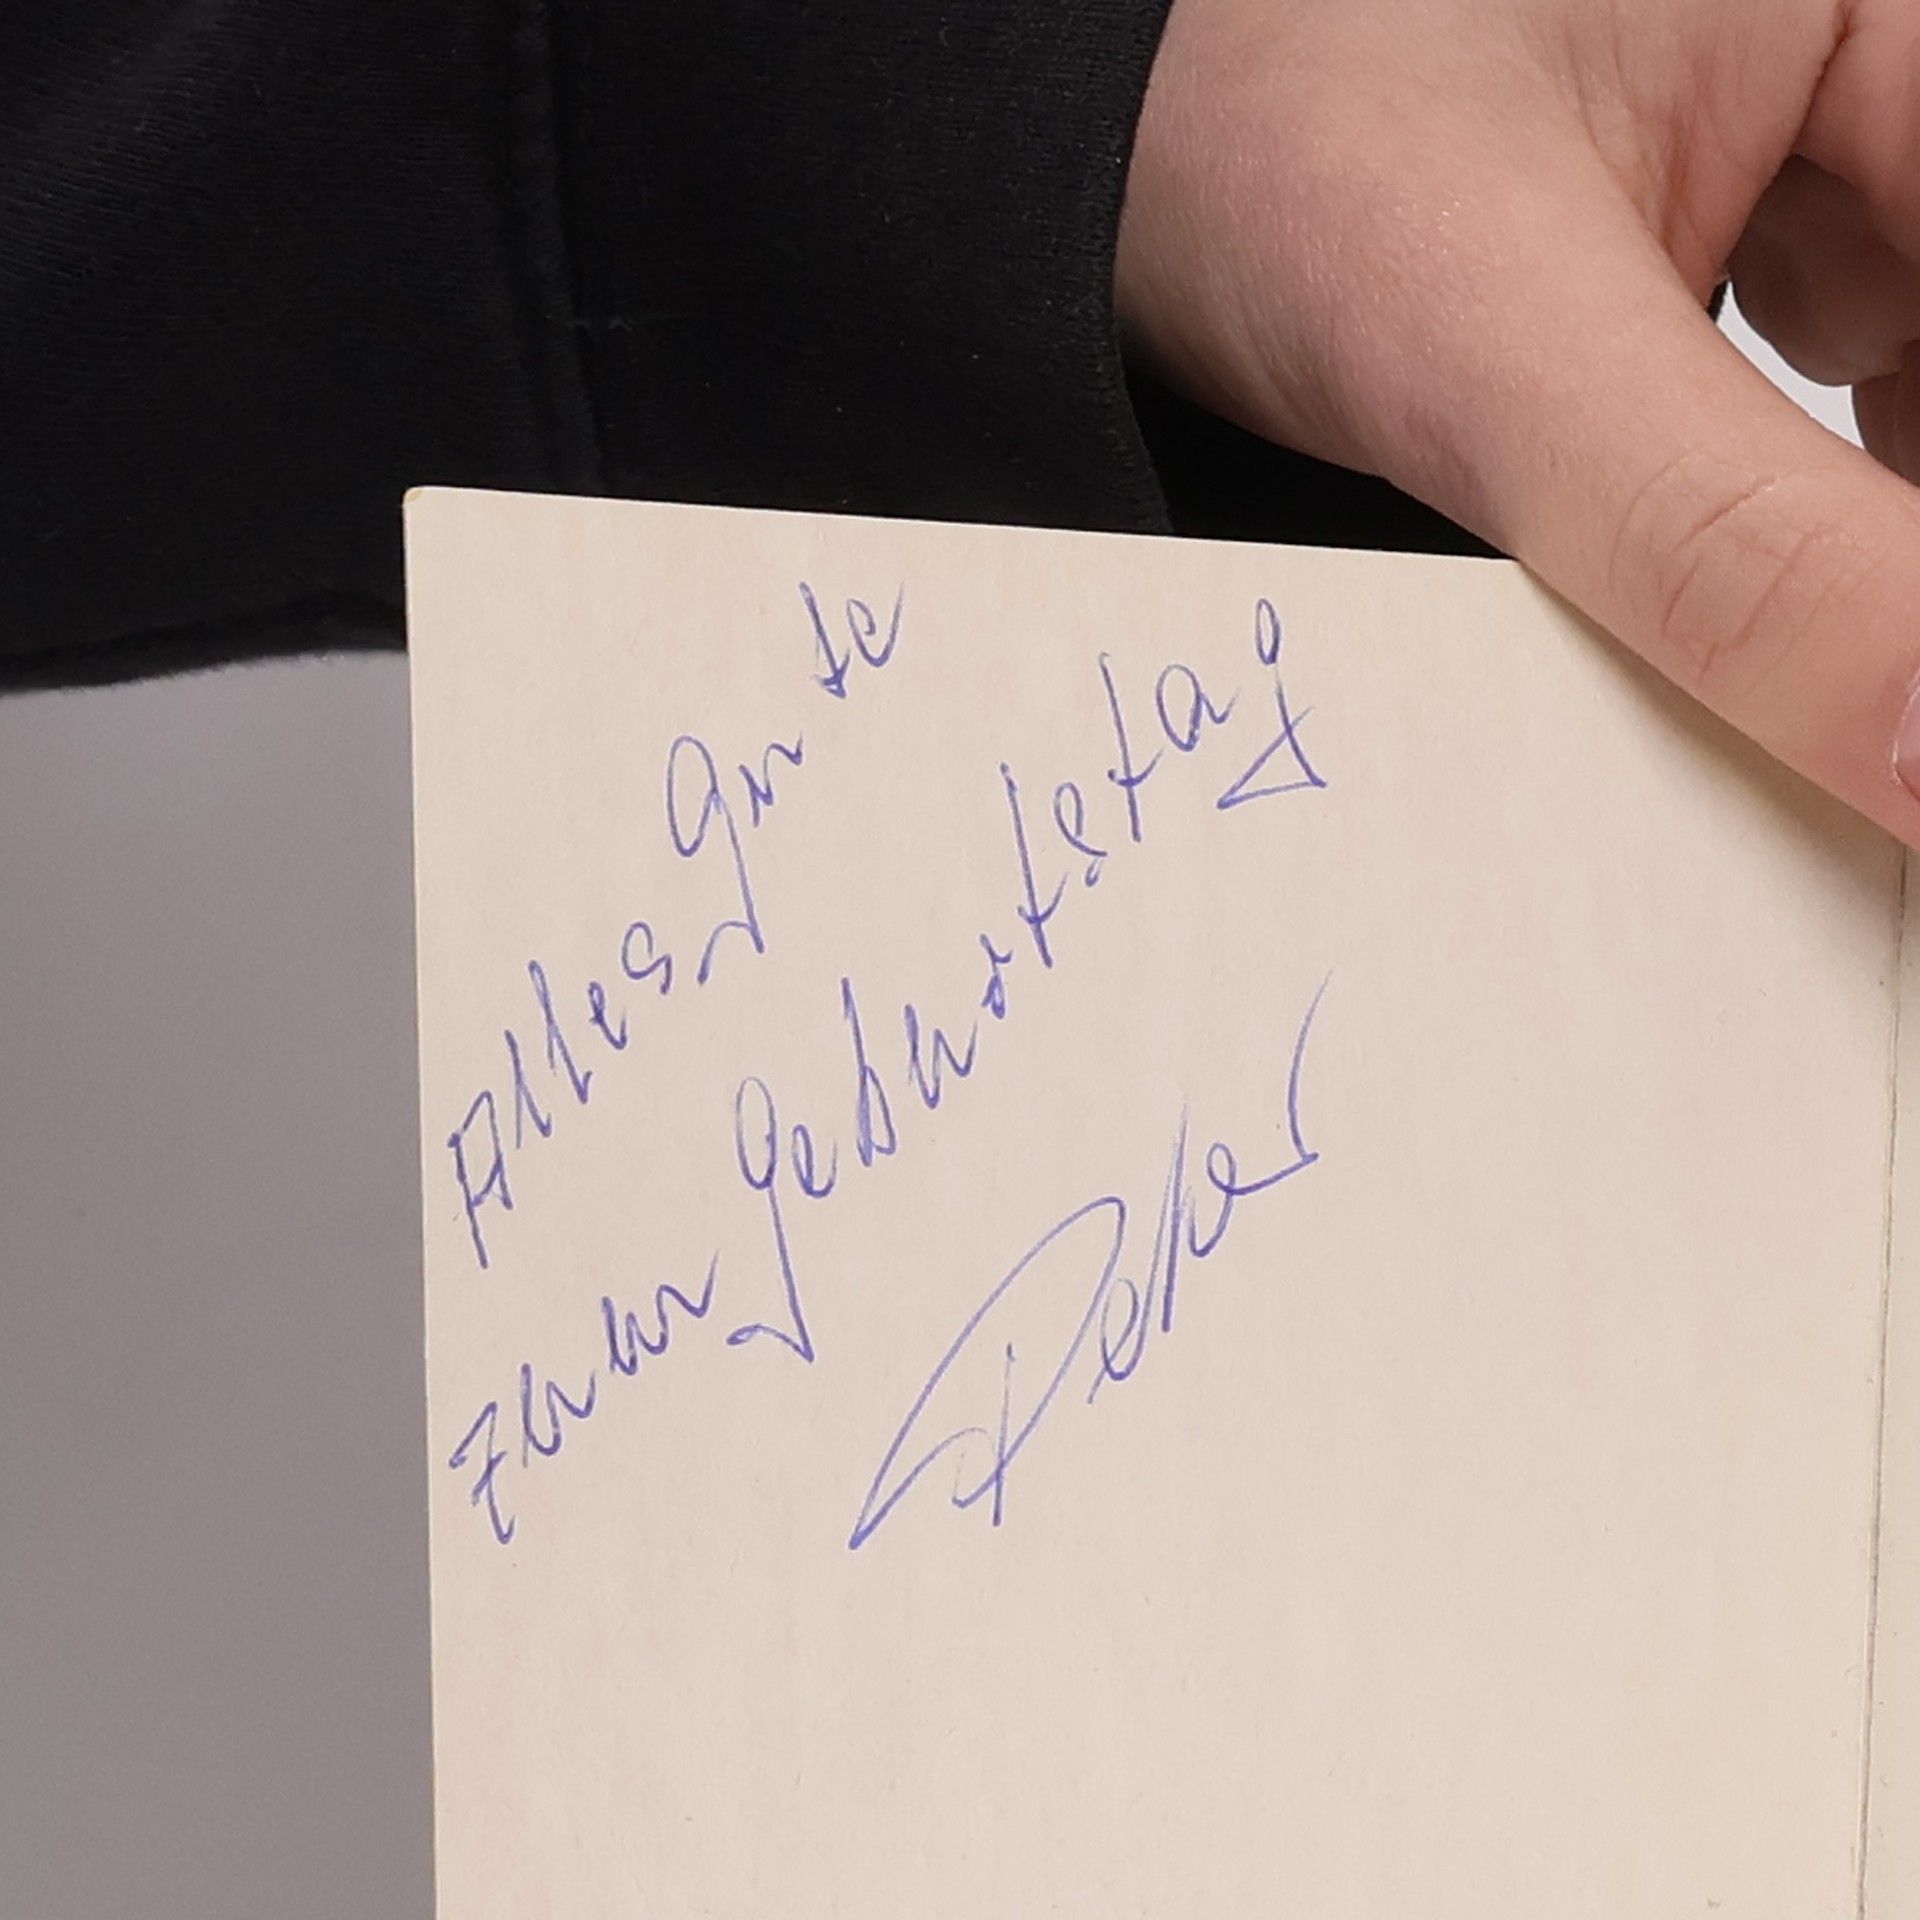 Alles gute
zum Geburtstag
Peter